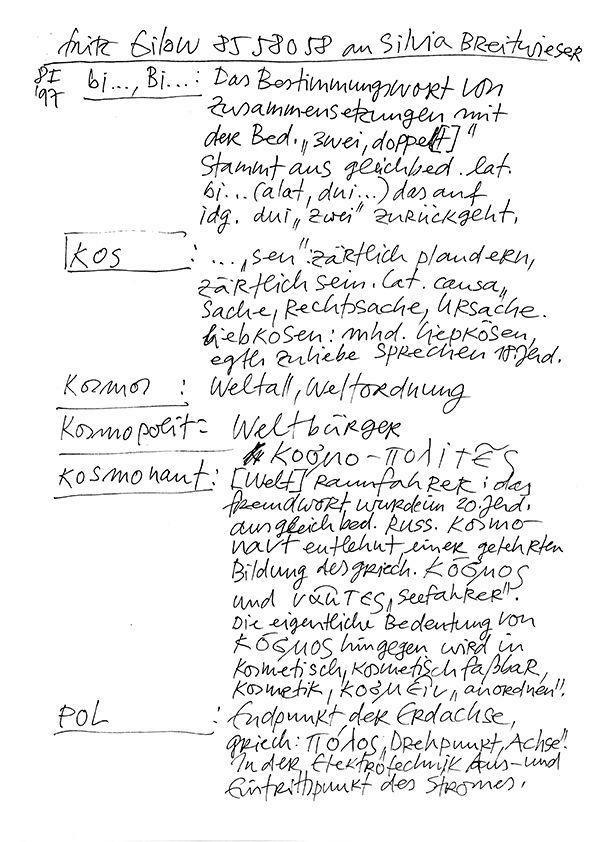 fritz Gilow 8558058 an Silvia BREitwieser
8I
'97
bi..., Bi...: Das Bestimmungswort von
Zusammensetzungen mit
der Bed. „zwei, doppel[t]"
Stammt aus gleichbed. lat.
bi... (alat, dui...) das auf
idg. dui „zwei" zurückgeht.
KOS : ... „sen": zärtlich plaudern,
zärtlich sein. Lat. causa „
Sache, Rechtssache, Ursache.
liebkosen: mhd. liepkōsen,
egtl. zuliebe sprechen 18. Jhd.
Kosmos : Weltall, Weltordnung
Kosmopolit = Weltbürger
κοσμο-πολιτēς
KOSMONAUT: [Welt] RAUMFAHRER: das
Fremdwort wurde im 20. Jhd.
aus gleichbed. Russ. Kosmo-
naut entlehnt einer gelehrten
Bildung des griech. κόσμος
und ναῦτες „Seefahrer".
Die eigentliche Bedeutung von
κόσμος hingegen wird in
Kosmetisch, Kosmetisch faßbar,
Kosmetik, κοσμεῖν „anordnen".
POL : Endpunkt der Erdachse,
griech: πόλος „Drehpunkt, Achse".
In der Elektrotechnik Aus- und
Eintrittspunkt des Stromes.